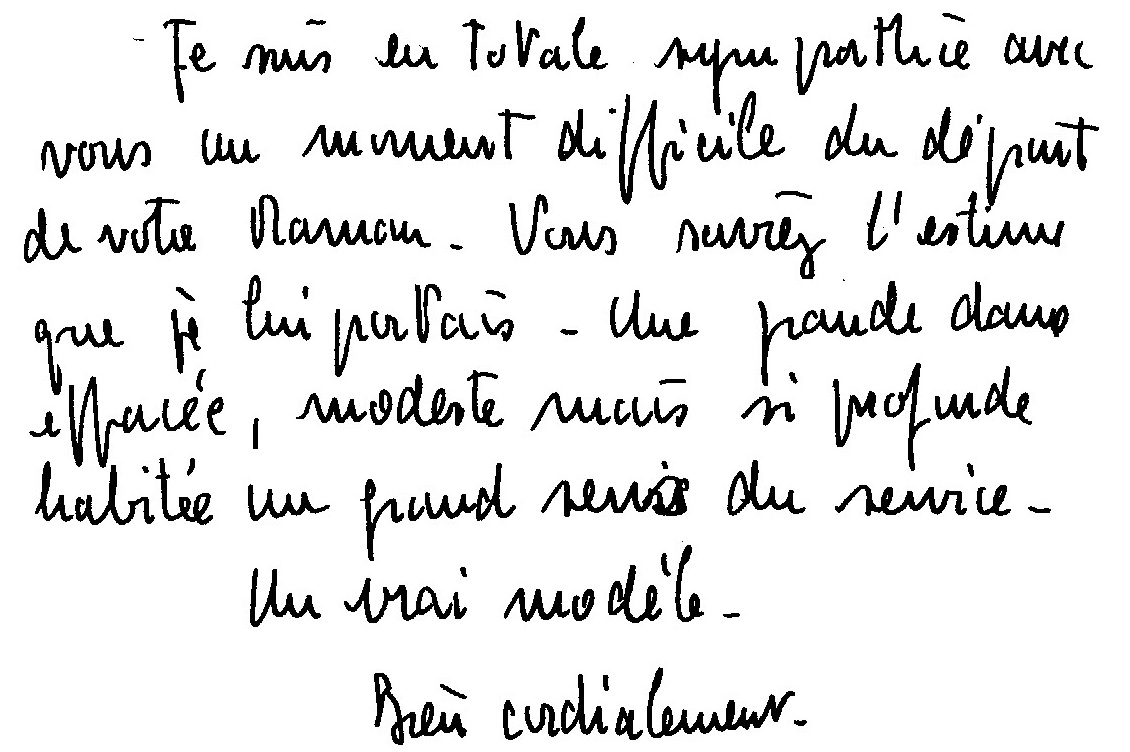 Je suis en totale sympathie avec
vous au moment difficile du départ
de votre Maman. Vous saviez l'estime
que je lui portais - Une grande dame
effacée, modeste mais si profonde
habitée un grand sens du service -
Un vrai modèle -
Bien cordialement.